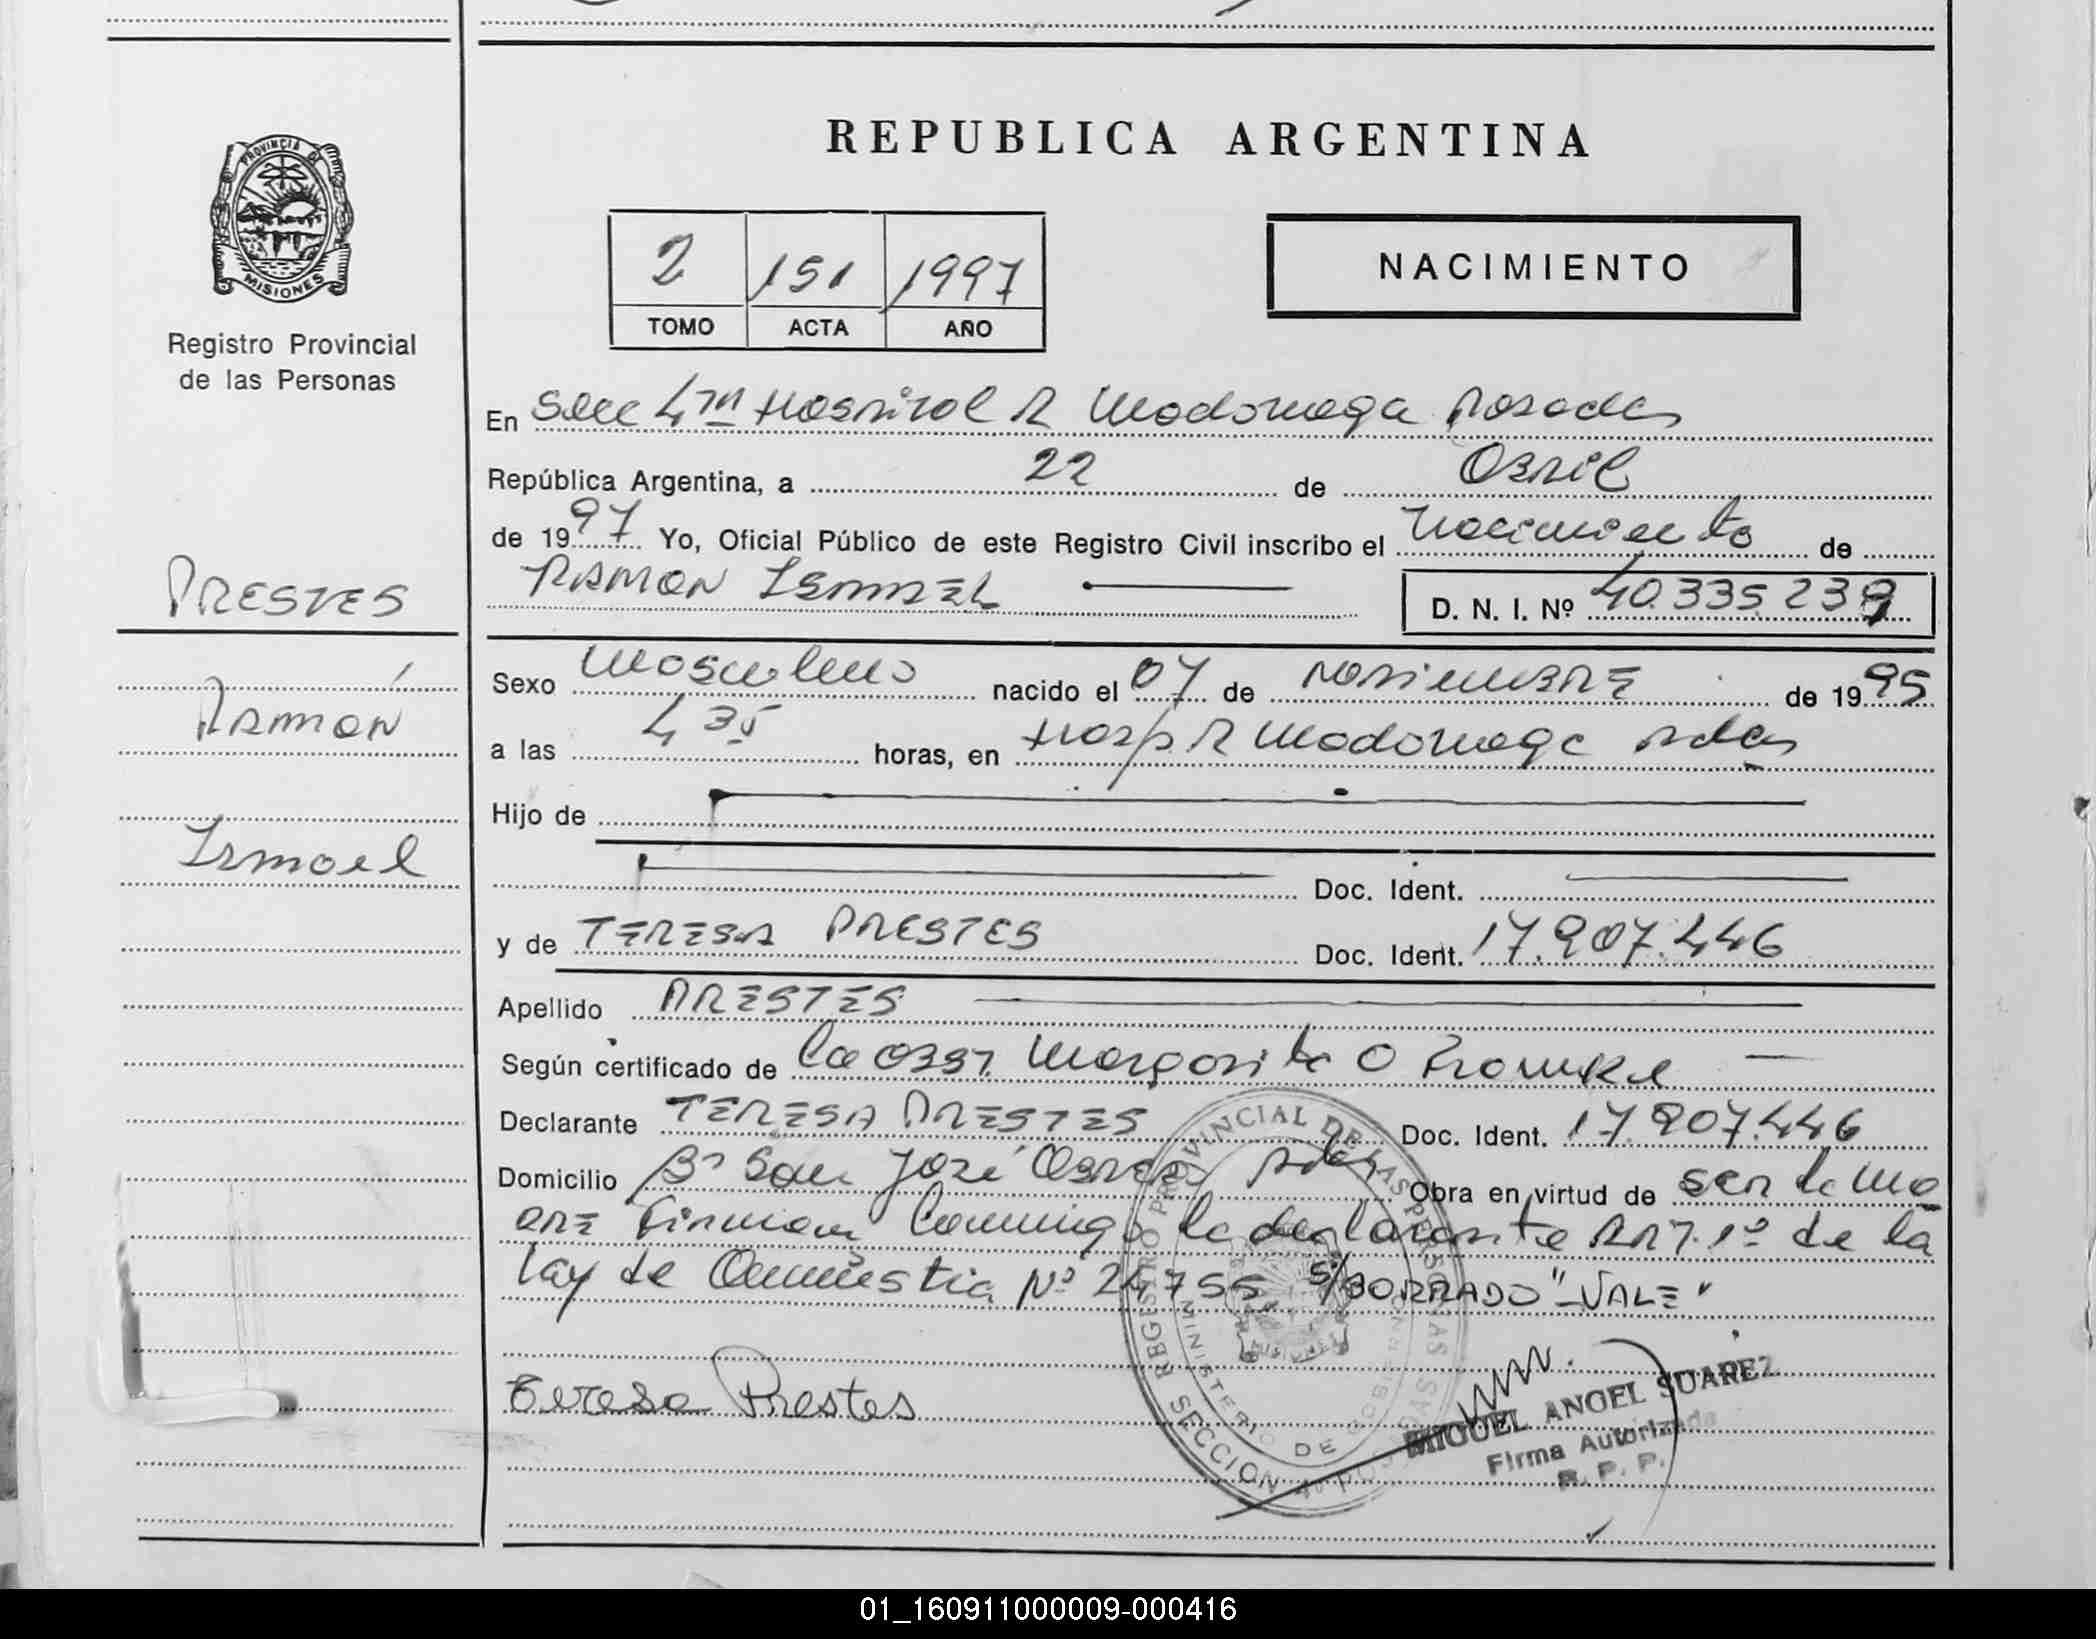 REPUBLICA ARGENTINA
PROVINCIA DE
MISIONES
Registro Provincial
de las Personas
2 151 1997
TOMO ACTA AÑO
NACIMIENTO
En Secc 4ta Hospital R Madariaga Posadas
República Argentina, a 22 de Abril
de 1997 Yo, Oficial Público de este Registro Civil inscribo el nacimiento de
RAMON ISMAEL
D. N. I. Nº 40.335.239
PRESTES
Ramón
Ismael
Sexo Masculino nacido el 07 de Noviembre de 1995
a las 4 35 horas, en Hosp R Madariaga Pdas
Hijo de
Doc. Ident.
y de TERESA PRESTES Doc. Ident. 17.907.446
Apellido PRESTES
Según certificado de la Obst. Margarita O
Declarante TERESA PRESTES Doc. Ident. 17.907.446
Domicilio Bº San José Obrero Pdas Obra en virtud de ser la ma
dre Firman Conmigo la declarante Art. 1º de la
Ley de Amnistia Nº 24755 S/BORRADO "-VALE"
Teresa Prestes
REGISTRO PROVINCIAL DE LAS PERSONAS
MINISTERIO DE GOBIERNO
SECCION 4ª POSADAS
MIGUEL ANGEL SUAREZ
Firma Autorizada
R. P. P.
01_160911000009-000416